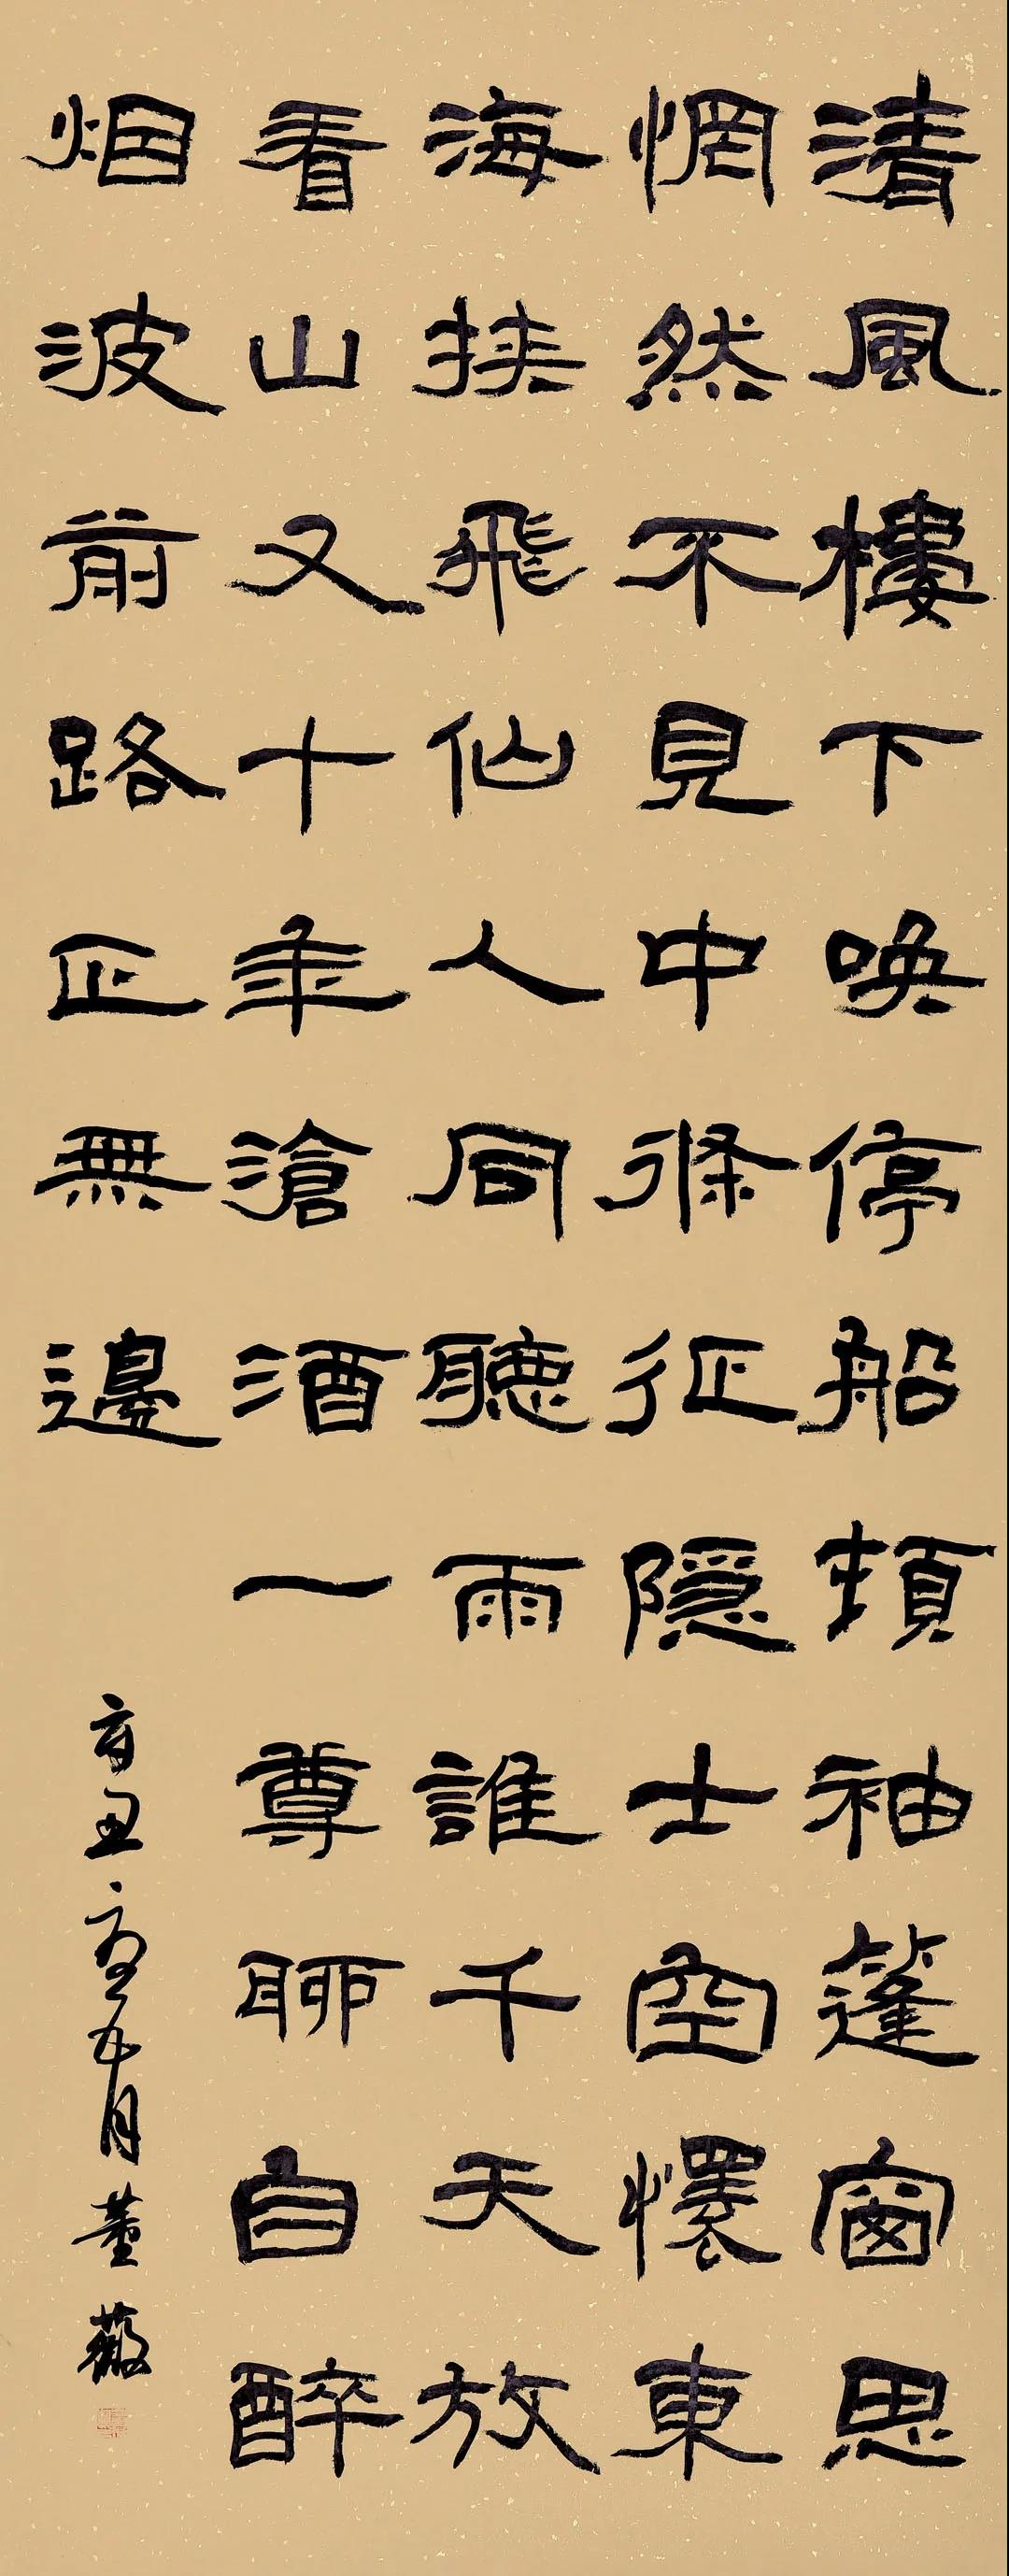 渚風樓下唤停船頓袖篷窗思
惘然不見中條征隱士空懷東
海挾飛仙人同聽雨誰千天放
看山又十年滄酒一尊聊自醉
烟波前路正無邊
辛丑夏五月董薇